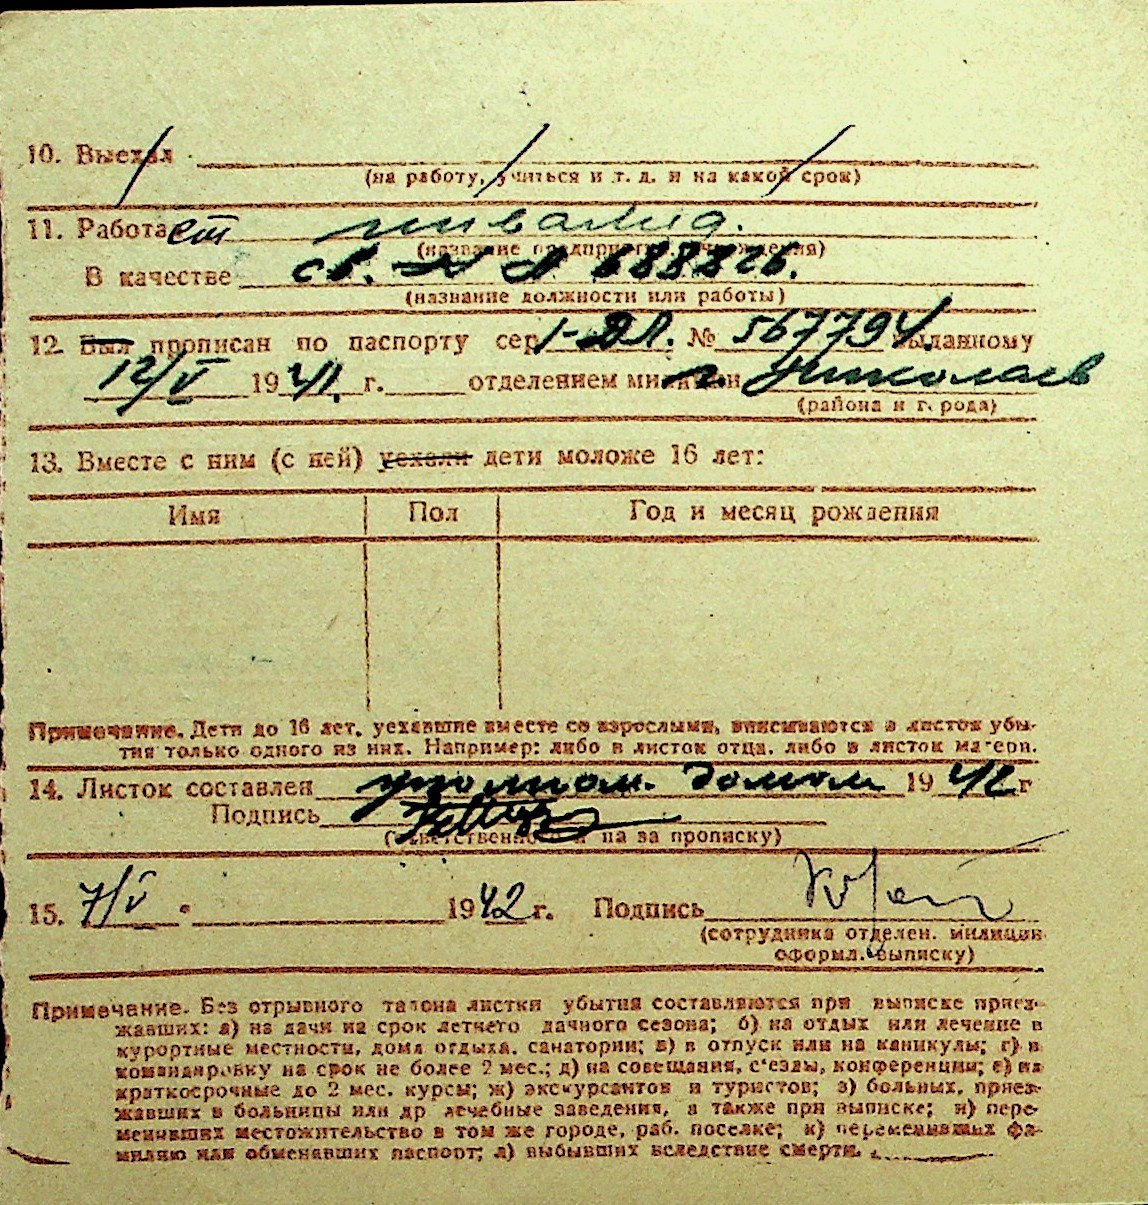 10. Выехал
(на работу, учиться и т. д. и на какой срок)
11. Работает инвалид.
(название предприятия, учреждения)
В качестве св. 688826.
(название должности или работы)
12. Был прописан по паспорту сер. № 567794. выданному
12/V 1941. г. отделением г. Николаев
(района и города)
13. Вместе с ним (с ней) уехали дети моложе 16 лет:
Имя Пол Год и месяц рождения
Примечание. Дети до 16 лет, уехавшие вместе со взрослыми, вписываются в листок убы-
тия только одного из них. Например: либо в листок отца, либо в листок матери.
14. Листок составлен 1942 г
Подпись
(ответственного лица за прописку)
15. 7/V. 1942 г. Подпись
(сотрудника отделен. милиции
оформл. выписку)
Примечание. Без отрывного талона листки убытия составляются при выписке приез-
жавших: а) на дачи на срок летнего дачного сезона; б) на отдых или лечение в
курортные местности, дома отдыха, санатории; в) в отпуск или на каникулы; г) в
командировку на срок не более 2 мес.; д) на совещания, с'езды, конференции; е) на
краткосрочные до 2 мес. курсы; ж) экскурсантов и туристов; з) больных, приез-
жавших в больницы или др лечебные заведения, а также при выписке; и) пере-
менивших местожительство в том же городе, раб. поселке; к) переменивших фа-
милию или обменявших паспорт; л) выбывших вследствие смерти.